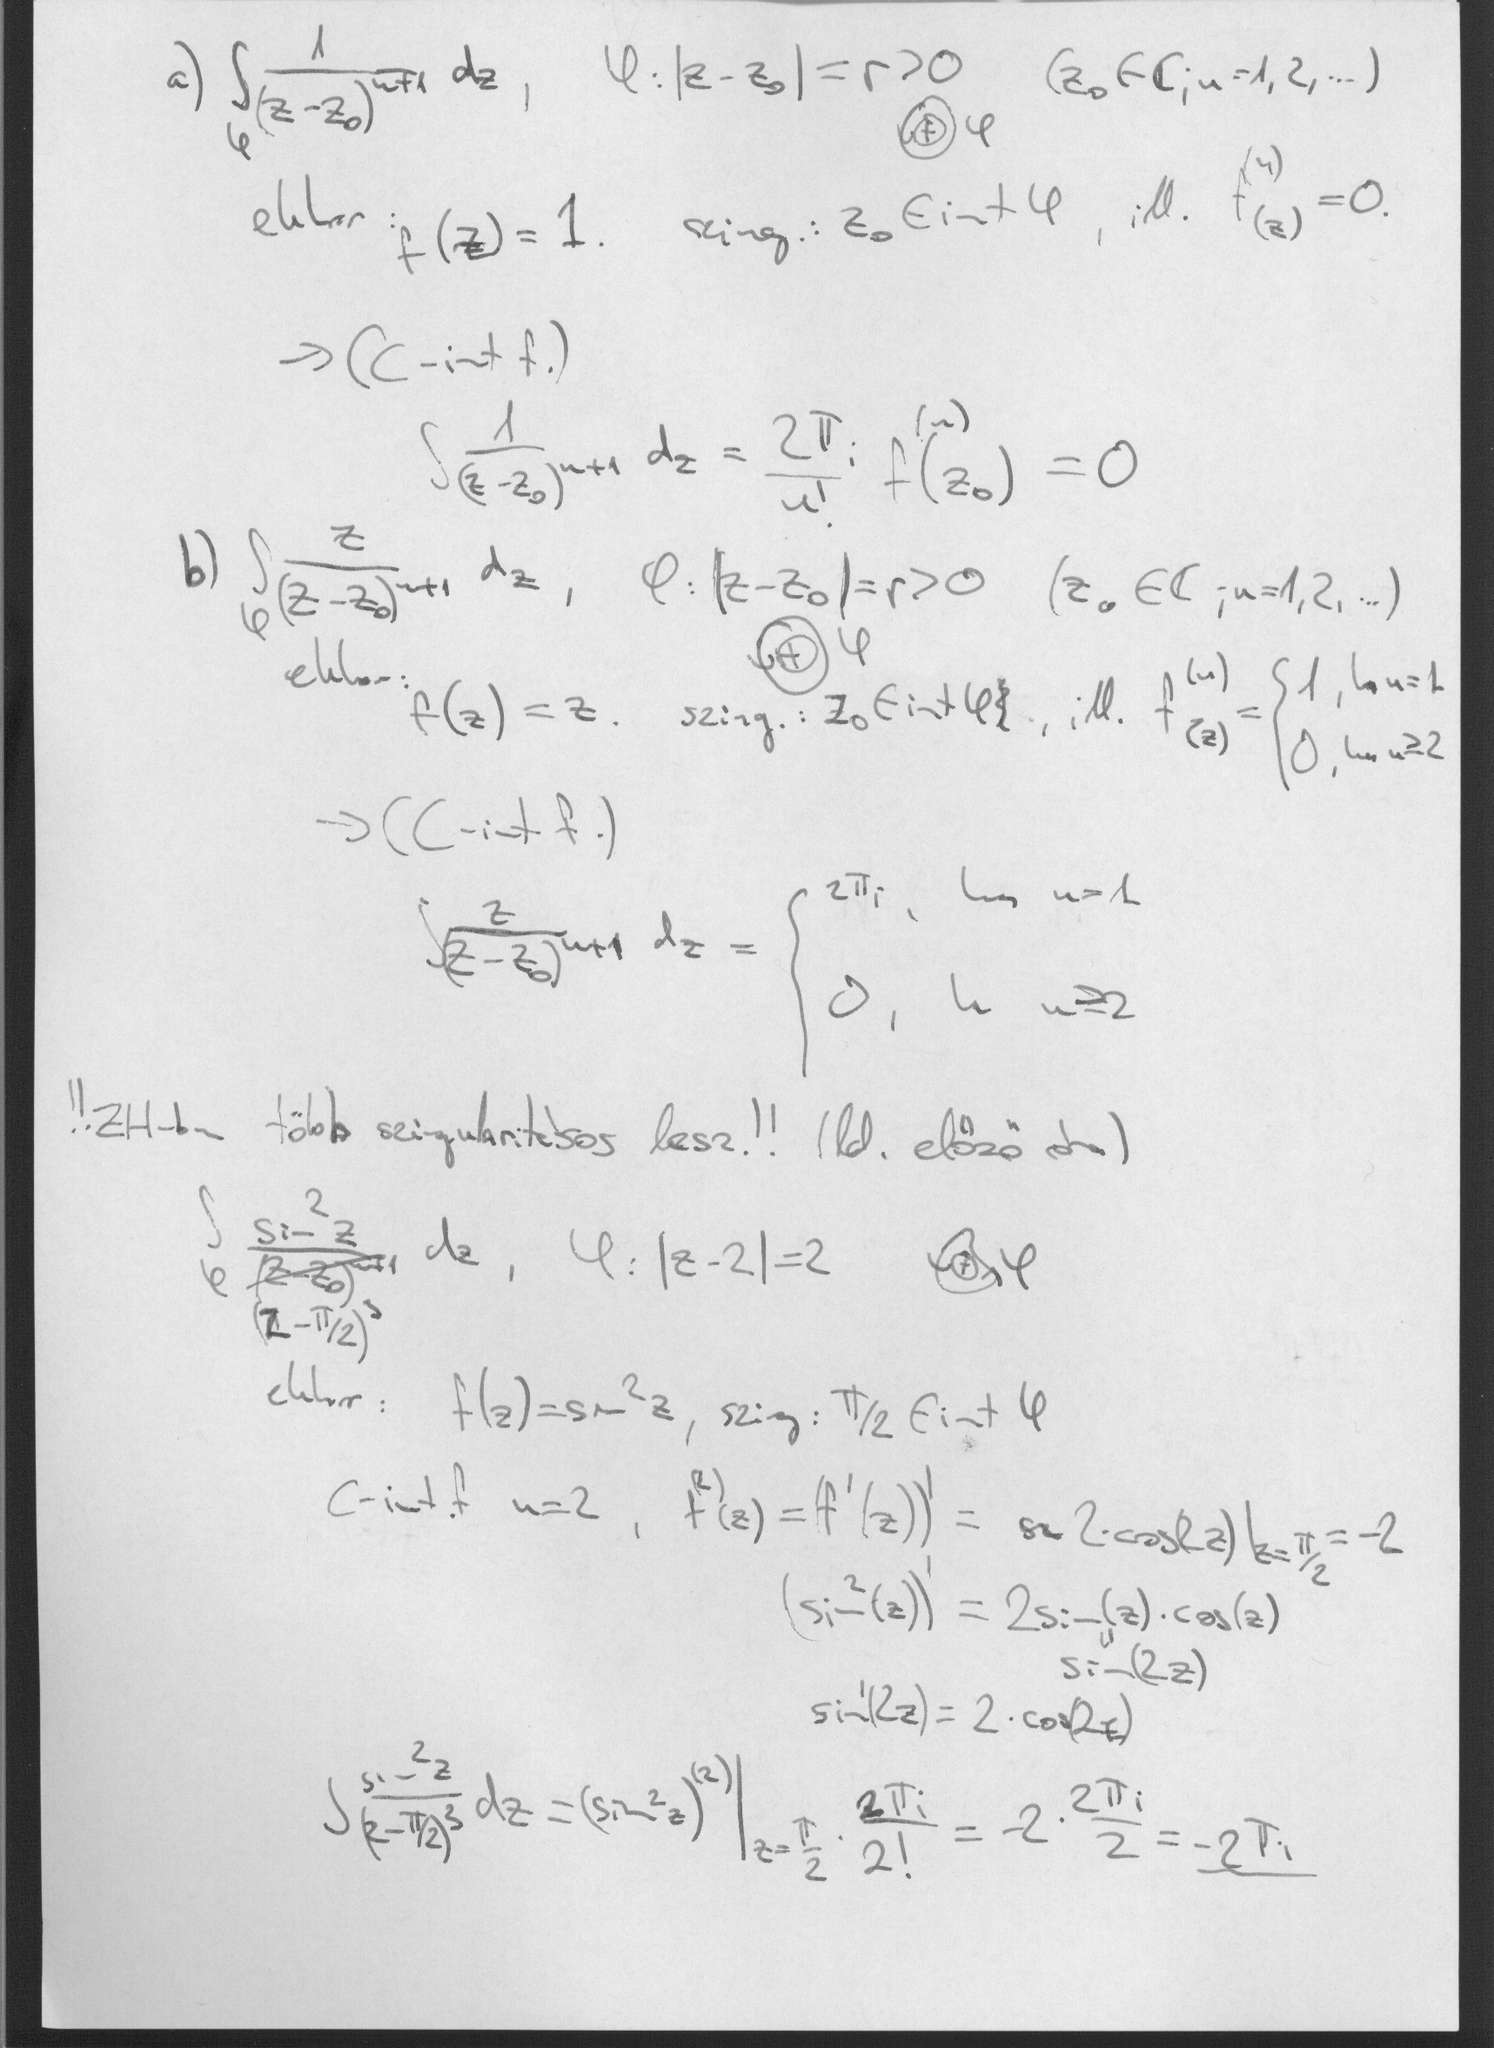 a) ∫_φ 1/(z-z₀)^{n+1} dz , φ: |z-z₀| = r > 0 (z₀ ∈ ℂ; n=1, 2, ...)
+ φ
ekkor: f(z) = 1. szing.: z₀ ∈ int φ, ill. f^{(n)}(z) = 0.
→ (C-int f.)
∫ 1/(z-z₀)^{n+1} dz = 2πi/n! f^{(n)}(z₀) = 0
b) ∫_φ z/(z-z₀)^{n+1} dz , φ: |z-z₀| = r > 0 (z₀ ∈ ℂ; n=1, 2, ...)
+ φ
ekkor: f(z) = z. szing.: z₀ ∈ int φ, ill. f^{(n)}(z) = { 1, ha n=1
0, ha n≥2
→ (C-int f.)
∫ z/(z-z₀)^{n+1} dz = { 2πi, ha n=1
0, h n≥2
!! ZH-ban több szingularitásos lesz!! (ld. előző óra)
∫_φ sin²z/(z-π/2)³ dz , φ: |z-2| = 2 + φ
ekkor: f(z) = sin²z, szing: π/2 ∈ int φ
C-int.f n=2 , f^{(2)}(z) = (f'(z))' = 2·cos(2z)|_{z=π/2} = -2
(sin²(z))' = 2sin(z)·cos(z)
sin(2z)
sin'(2z) = 2·cos(2z)
∫ sin²z/(z-π/2)³ dz = (sin²z)^{(2)}|_{z=π/2} · 2πi/2! = -2 · 2πi/2 = -2πi